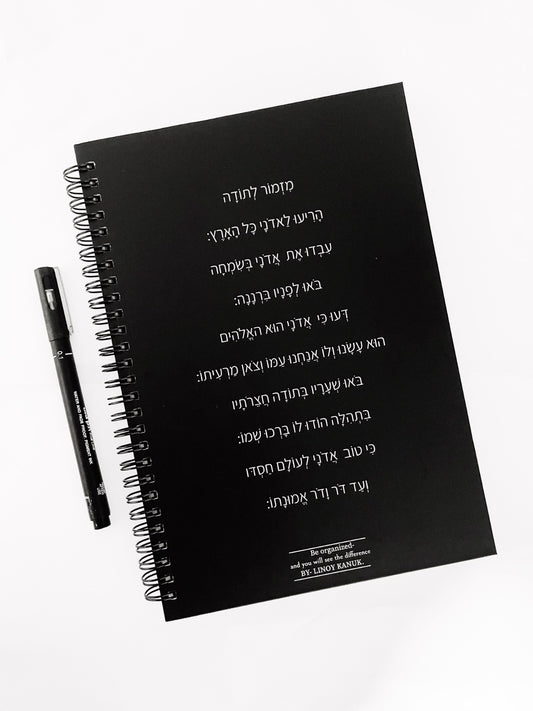 מִזְמוֹר לְתוֹדָה
הָרִיעוּ לַאדֹנָי כָּל הָאָרֶץ:
עִבְדוּ אֶת אֲדֹנָי בְּשִׂמְחָה
בֹּאוּ לְפָנָיו בִּרְנָנָה:
דְּעוּ כִּי אֲדֹנָי הוּא הָאֱלֹהִים
הוּא עָשָׂנוּ וְלוֹ אֲנַחְנוּ עַמּוֹ וְצֹאן מַרְעִיתוֹ:
בֹּאוּ שְׁעָרָיו בְּתוֹדָה חֲצֵרֹתָיו
בִּתְהִלָּה הוֹדוּ לוֹ בָּרְכוּ שְׁמוֹ:
כִּי טוֹב אֲדֹנָי לְעוֹלָם חַסְדּוֹ
וְעַד דֹּר וָדֹר אֱמוּנָתוֹ:
Be organized-
and you will see the difference
BY- LINOY KANUK.
0.1
WATER AND FADE PROOF PIGMENT INK